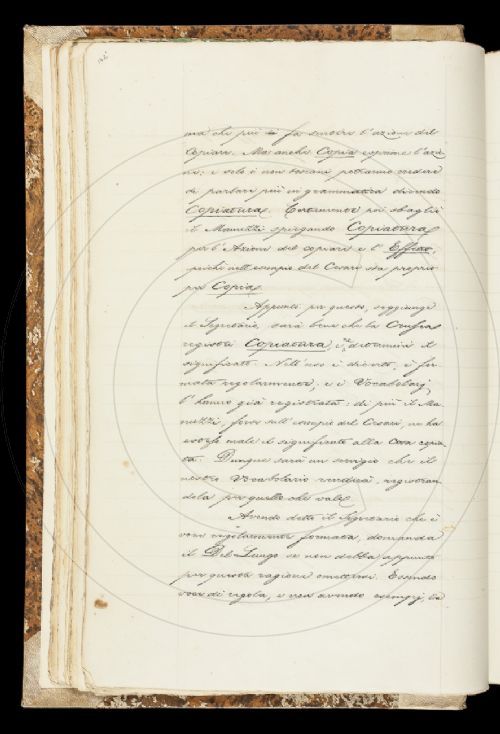 ma che più fa sentire l'azione del
copiare. Ma anche Copia esprime l'azio
ne: e solo i non toscani potranno credere
di parlare più in grammatica dicendo
Copiatura. Certamente poi sbaglia
il Manuzzi spiegando Copiatura
per l'Azione del copiare e l'Effetto,
perchè nell'esempio del Cesari sta proprio
per Copia.
Appunto per questo, soggiunge
il Segretario, sarà bene che la Crusca
registri Copiatura, e ne determini il
significato. Nell'uso è di certo, è for
mata regolarmente, e i Vocabolarj
l'hanno già registrata: di più il Ma
nuzzi, forse sull'esempio del Cesari, ne ha
male il significato alla Cosa copia
ta. Dunque sarà un servigio che il
nostro Vocabolario renderà, registran
dola per quello che vale.
Avendo detto il Segretario che è
voce regolarmente formata, domanda
il Del Lungo se non debba appunto
per questa ragione omettersi. Essendo
voce di regola, e non avendo esempj, la